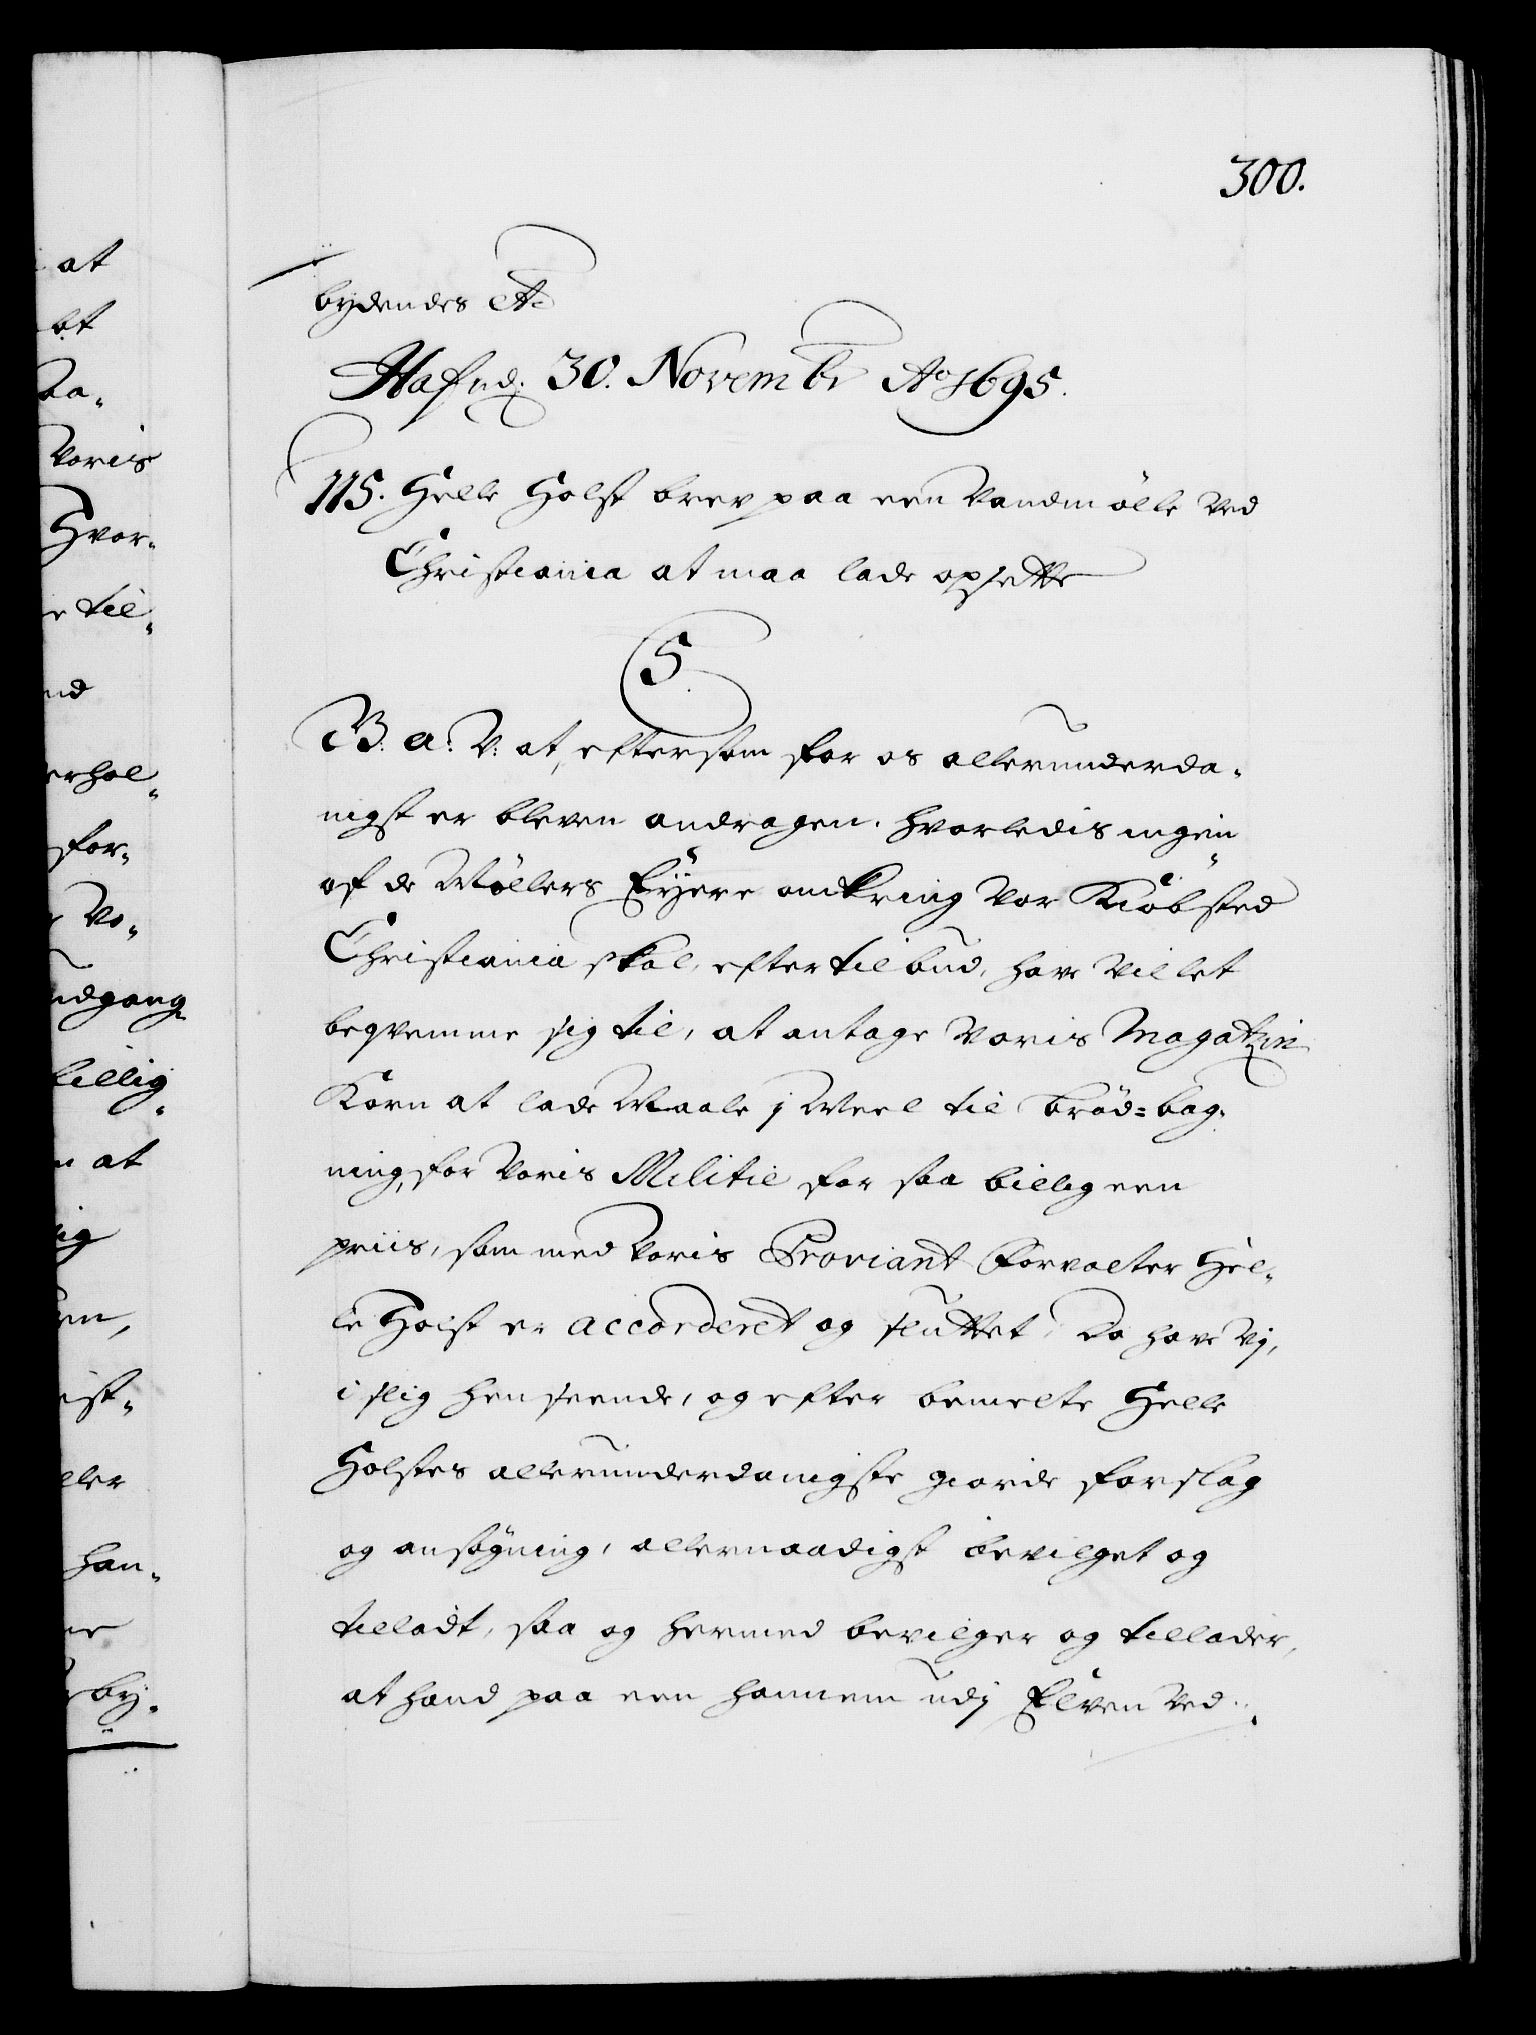 300.
bydendes Etc
Hafnd. 30. Novembr Ao 1695.
115. Helle Holst brev paa een Vandmölle ved
Christiania at maa lade opsette
5
B. a: V: at, eftersom for os allerunderda-
nigst er bleven andragen, hvorledis ingen
af de Möllers Eyere omkring vor Kiöbsted
Christiania skal, efter tilbud, have villet
beqvemme sig til, at antage Voris Magatzin
Korn at lade Maale j Meel til bröd=bag-
ning, for Voris Militie for saa billig een
priis, som med Voris Proviant Forvalter Hel-
le Holst er accorderet og sluttet, Da have Vj,
i slig henseende, og efter bemelte Helle
Holstes allerunderdanigste giorde forslag
og ansögning, allernaadigst bevilget og
tilladt, saa og hermed bevilger og tillader,
at hand paa een hannem udj Elven ved
at
bt
Voris
Hvor-
til-
erhol-
for-
Vo-
udgang
billig-
at
ller
han-
by-